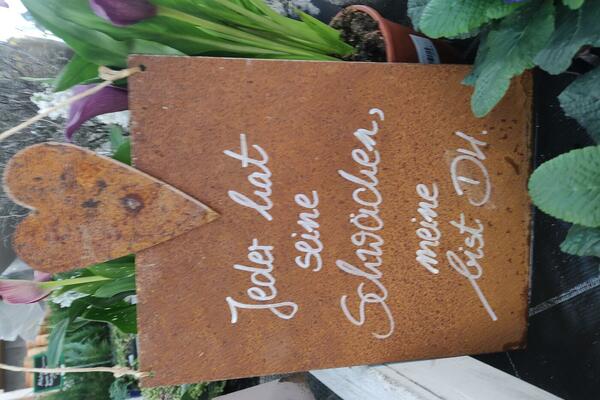 Jeder hat
seine
Schwächen,
meine
bist DU.